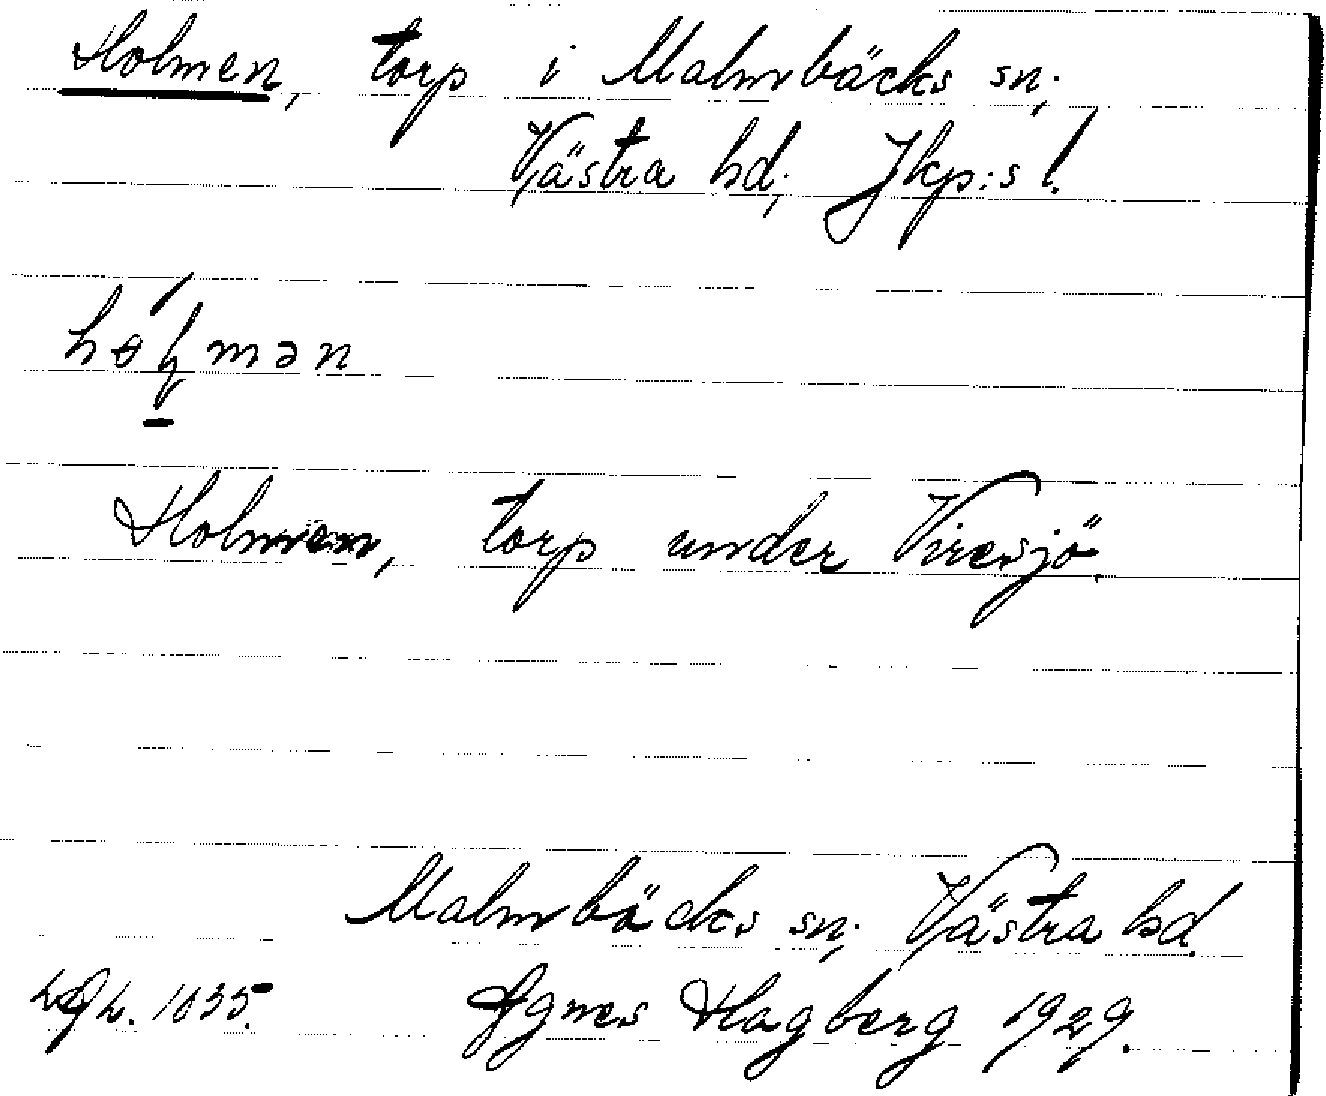 Holmen, torp i Malmbäcks sn;
Västra hd; Jkp:s l.
Holmen, torp under Viresjö.
Malmbäcks sn; Västra hd.
1035. Agnes Hagberg 1929.